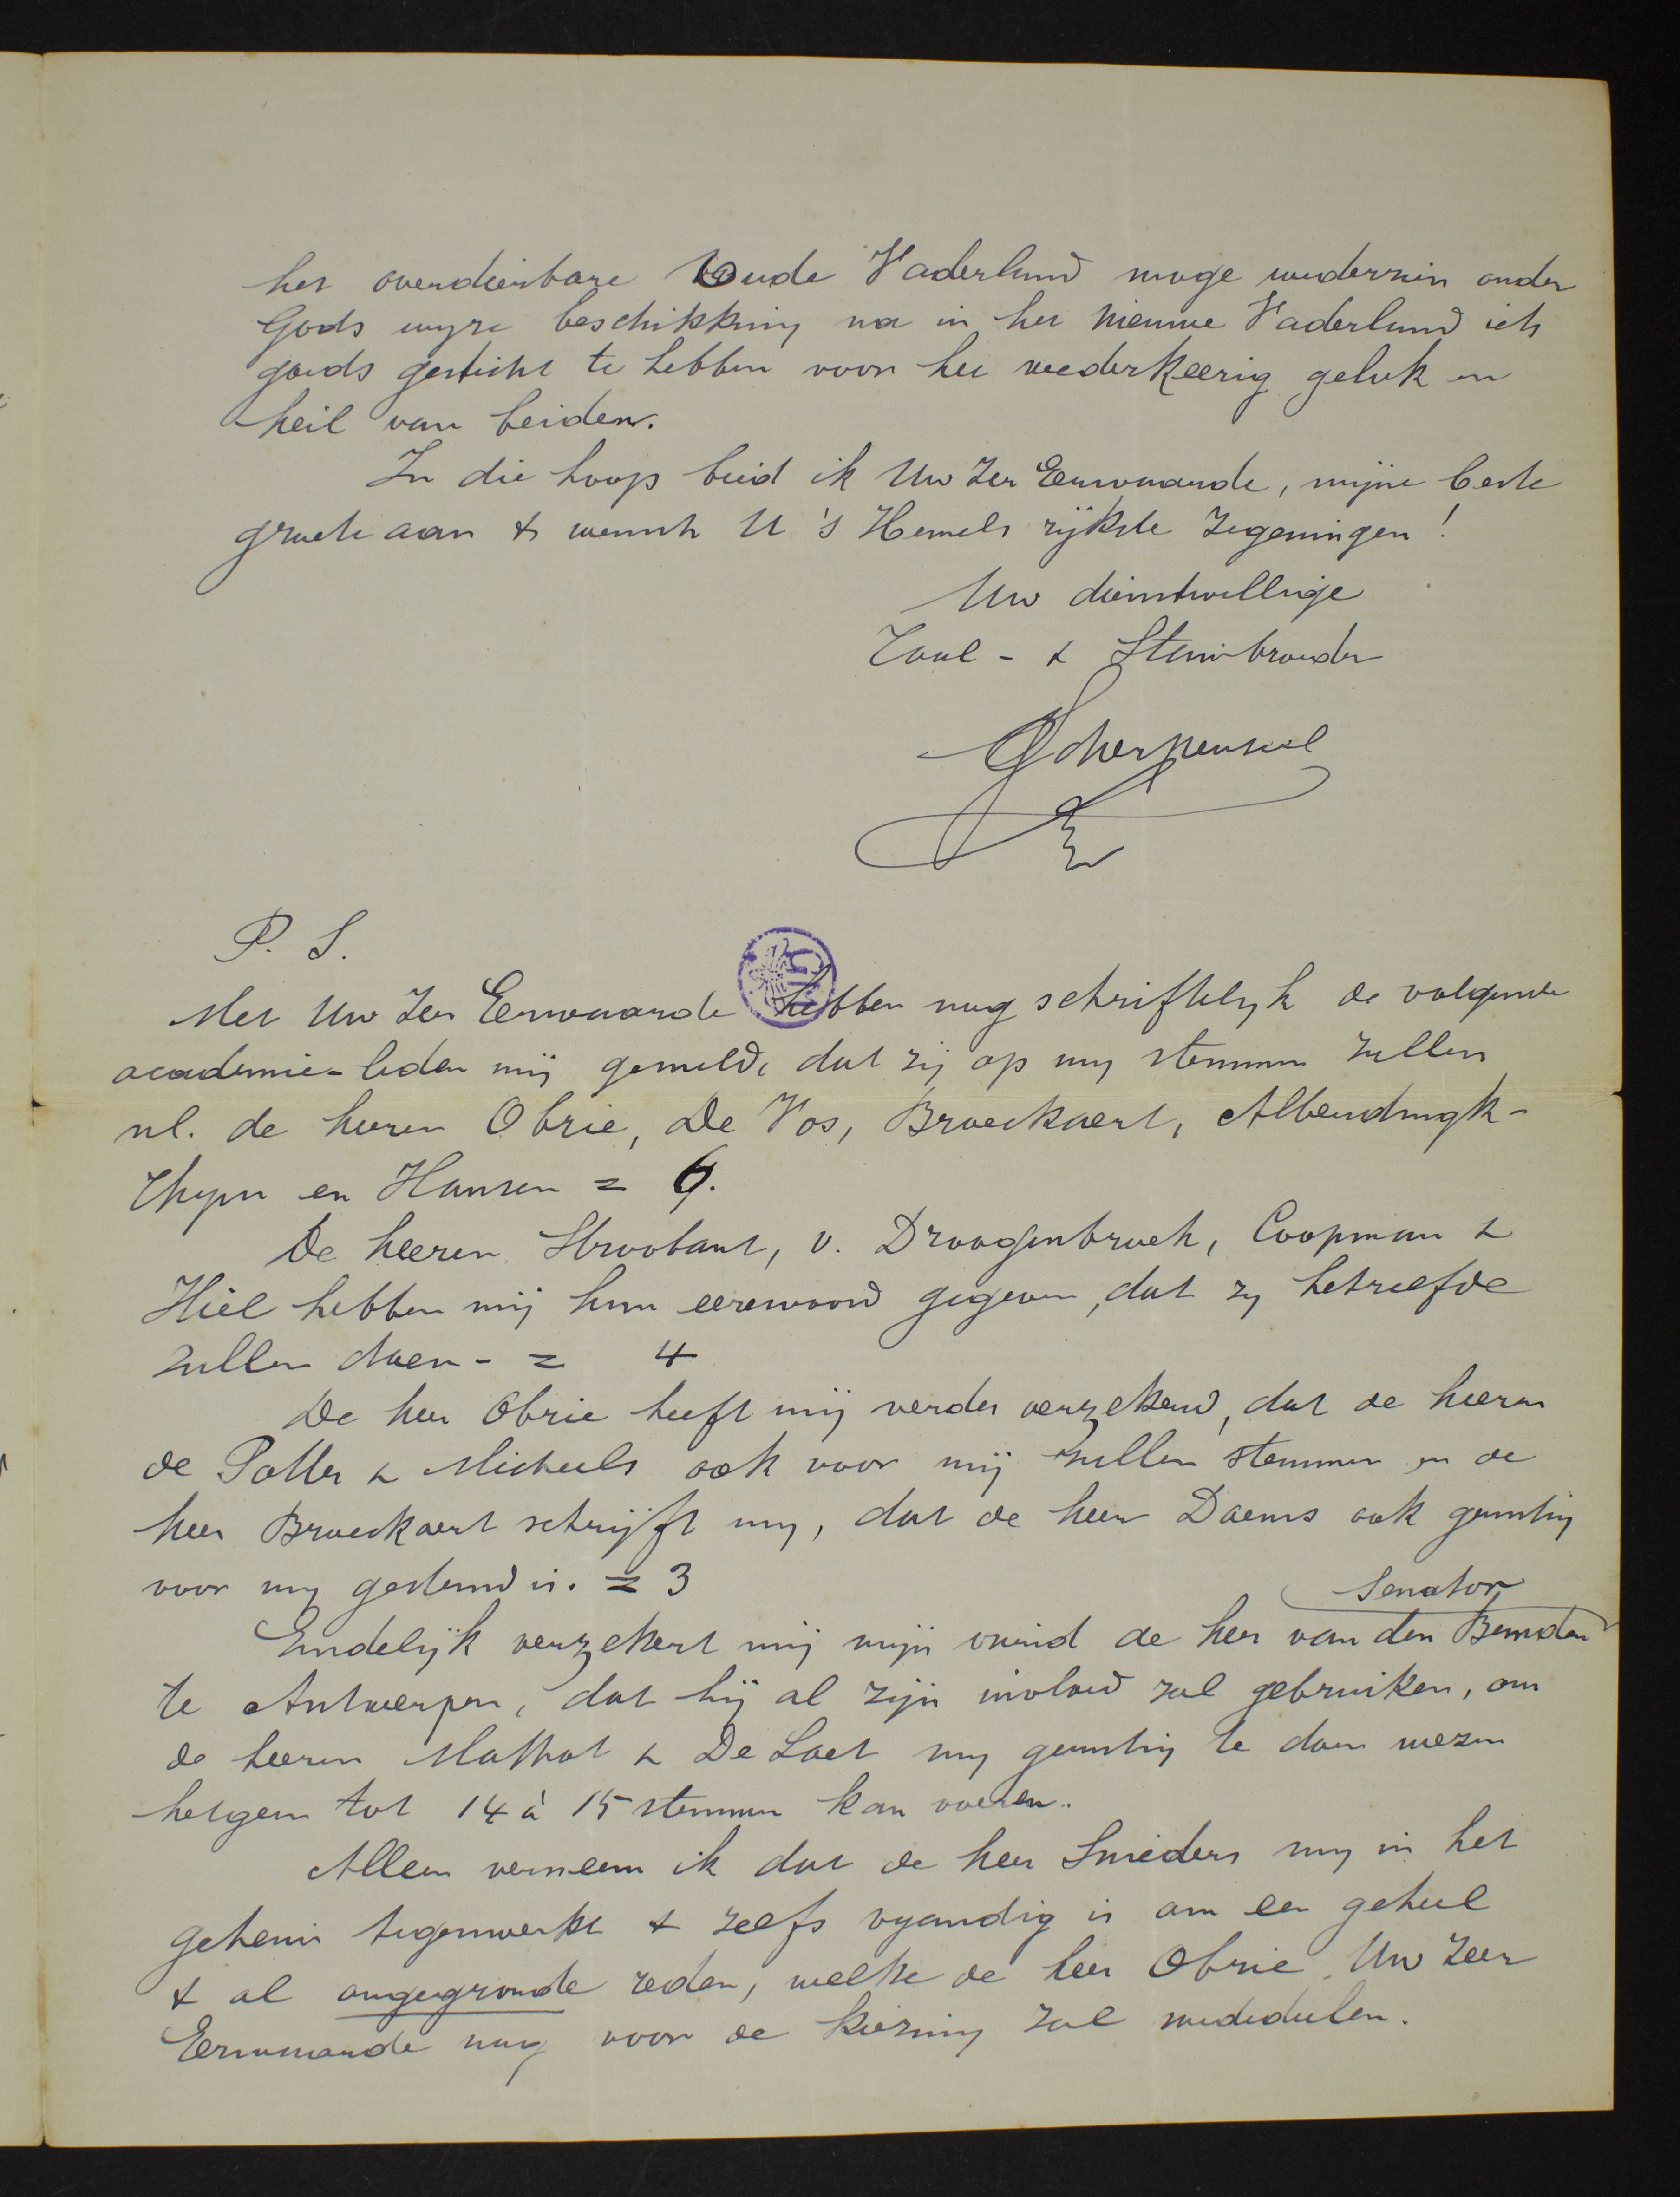 het overdierbare Oude Vaderland moge wederzien onder
Gods wyze beschikking na in het Nieuwe Vaderland iets
goeds gesticht te hebben voor het wederkeerig geluk en
heil van beiden.
In die hoop bied ik Uw Zeer Eerwaarde, mijne beste
groete aan & wensch U 's Hemels rijkste Zegeningen!
Uw dienstwillige
Taal- & Stambroeder
Scherpenseel
P. S.
Met Uw Zeer Eerwaarde hebben nog schriftelyk de volgende
academie-leden mij gemeld, dat zij op my stemmen zullen
nl. de heeren Obrie, De Vos, Broeckaert, Alberdingk-
Thym en Hansen = 6.
De heeren Stroobant, v. Droogenbroek, Coopman &
Hiel hebben mij hun eerewoord gegeven, dat zy hetzelfde
zullen doen - = 4
De heer Obrie heeft mij verder verzekerd, dat de heeren
de Potter & Micheels ook voor mij zullen stemmen en de
heer Broeckaert schrijft my, dat de heer Daems ook gunstig
voor my gestemd is. = 3
Senator
Eindelijk verzekert mij mijn vriend de heer van den Bemden
te Antwerpen, dat hij al zijn invloed zal gebruiken, om
de heeren Mathot & De Laet my gunstig te doen wezen
hetgeen tot 14 à 15 stemmen kan voeren.
Alleen verneem ik dat de heer Snieders my in het
geheim tegenwerkt & zelfs vyandig is om een geheel
& al ongegronde reden, welke de heer Obrie Uw Zeer
Eerwaarde nog voor de kiezing zal mededeelen.